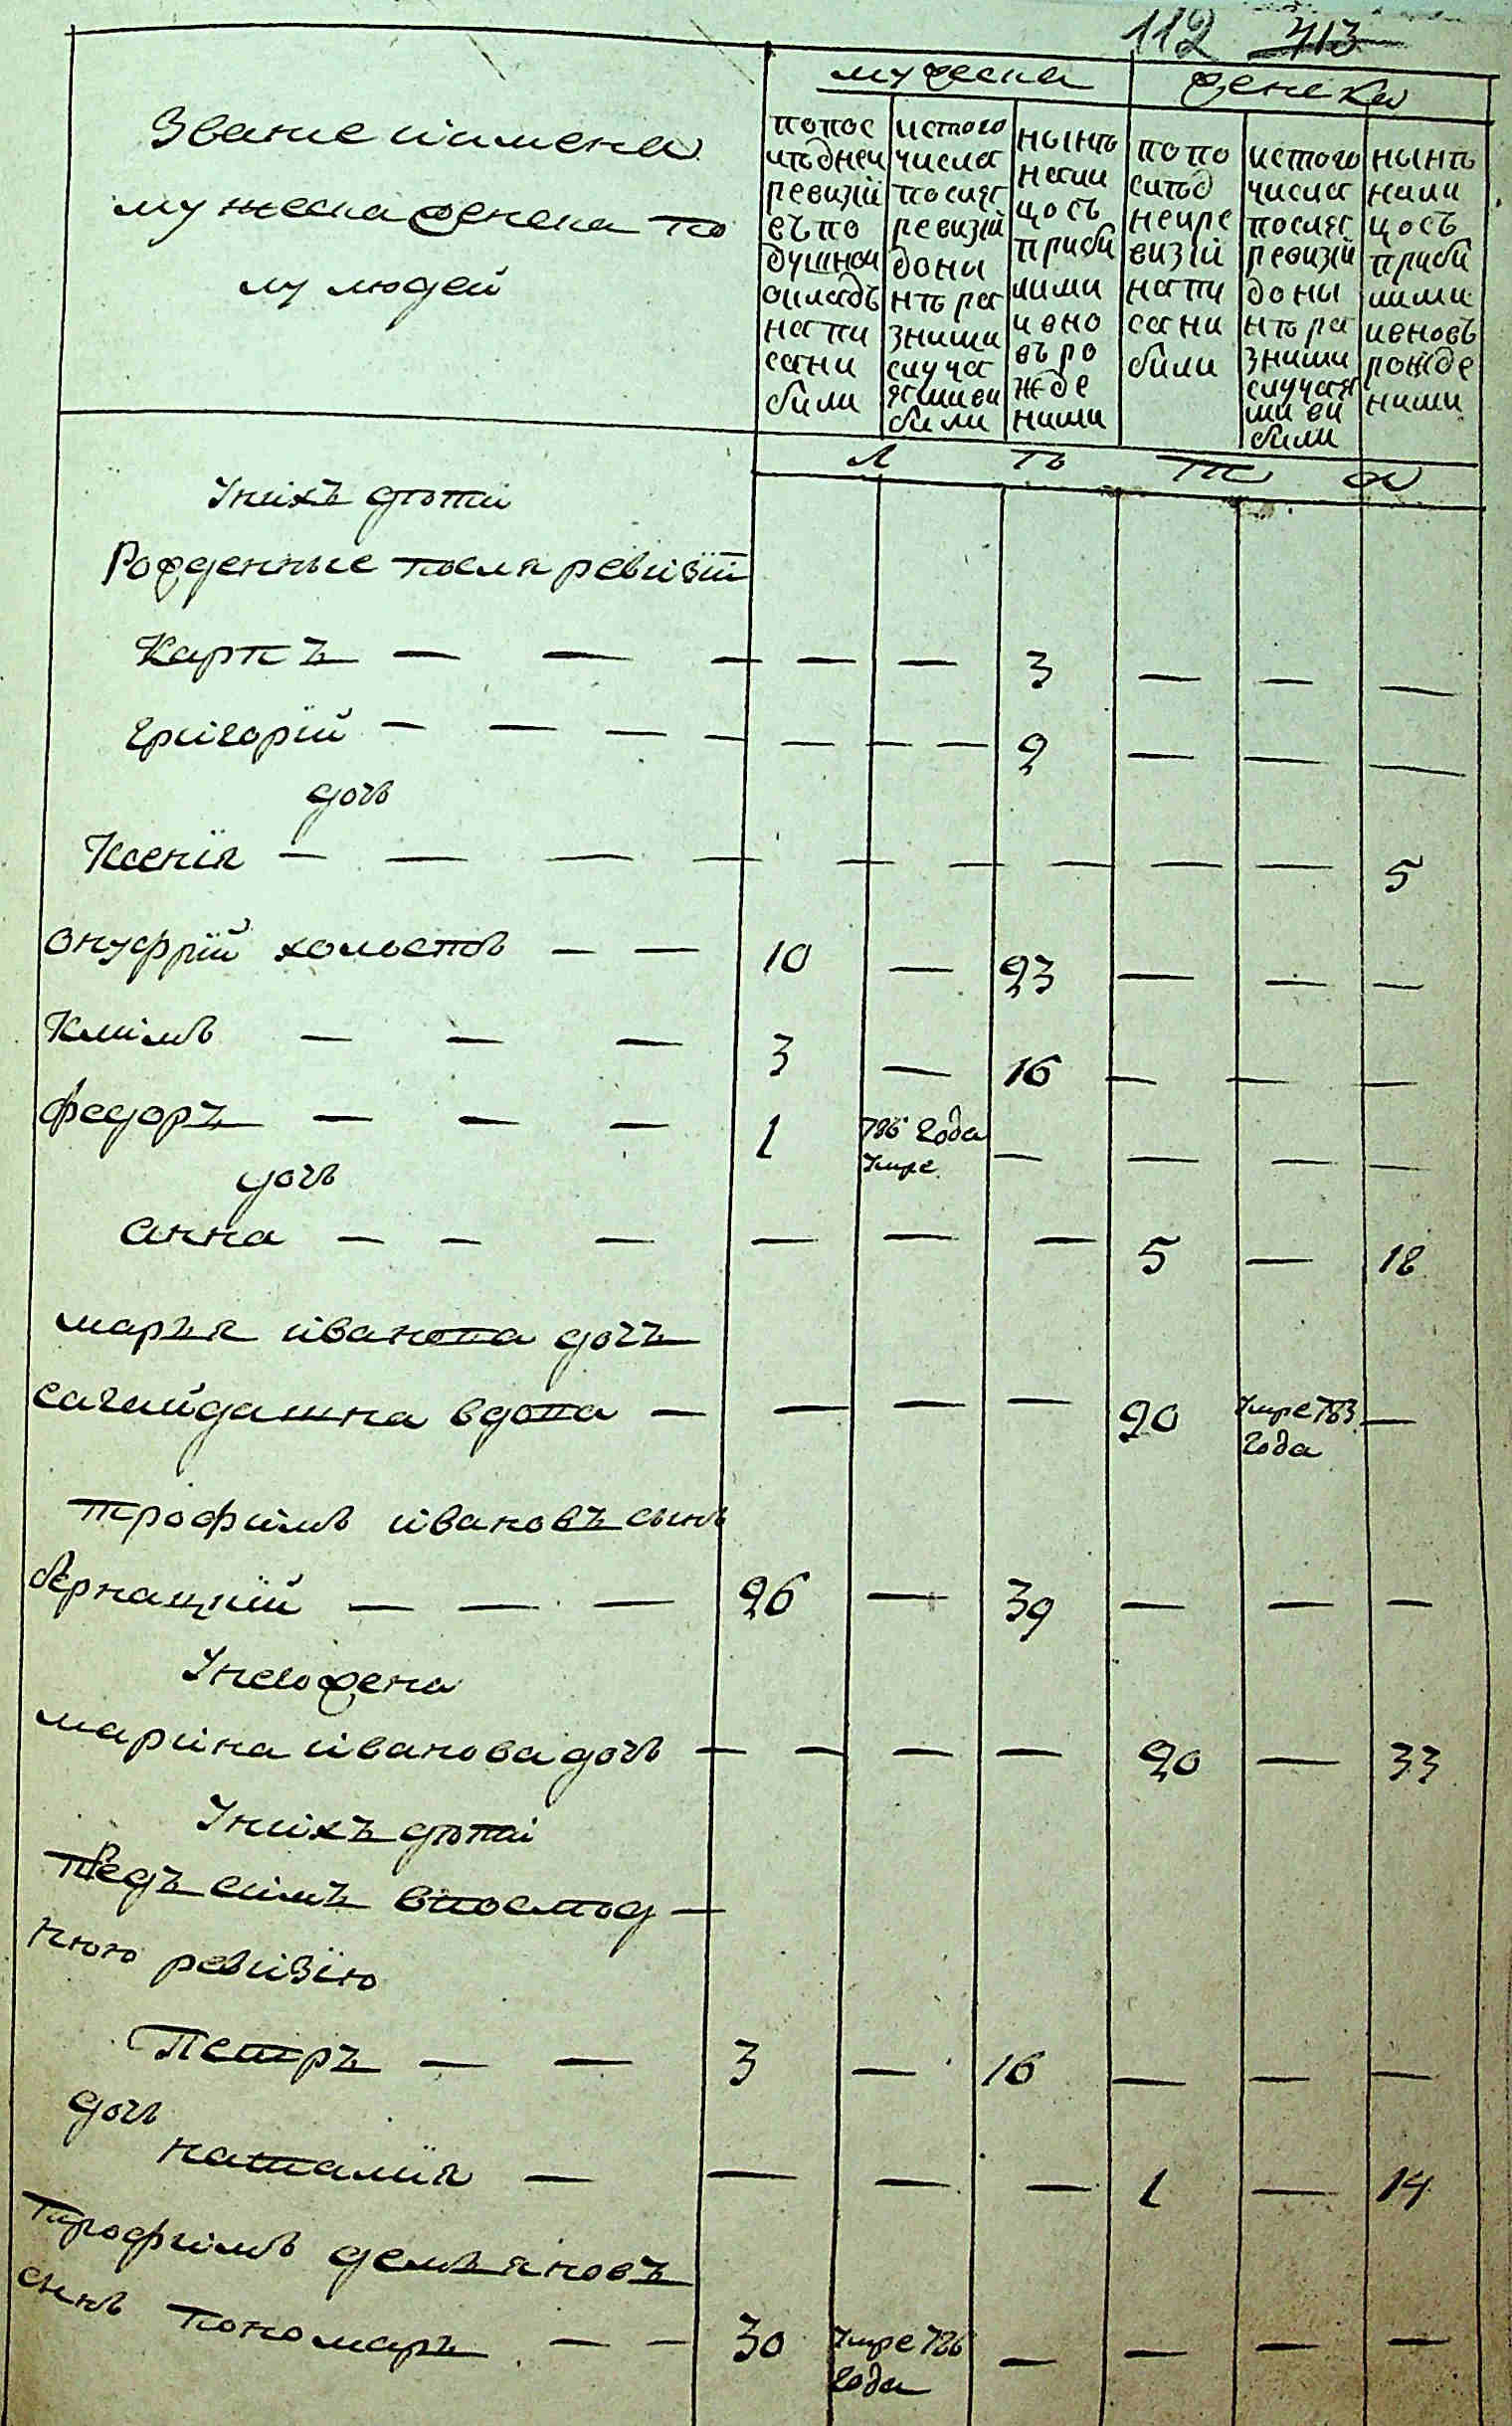 112 413
мужеска женска
Звание иимена
мужеска женска по
лу людей
попос
лѣднеи
ревизіи
въпо
душнои
окладъ
напи
сани
били
истого
числа
послѣ
ревизіи
дони
нѣ ра
зними
случа
ями ви
били
нынѣ
нали
цосъ
приби
лими
и вно
въ ро
жде
ними
по по
слѣд
неире
визіи
напи
сани
били
истого
числа
послѣ
ревизіи
дони
нѣ ра
зними
случая
ми ви
били
нынѣ
нали
цосъ
приби
лими
ивновъ
рожде
ними
Л ѣ т а
Унихъ дѣти
Рожденные после ревизіи
Карпъ — — — — — 3 — — —
григорій — — — — — — — 2 — — —
дочь
Ксенія — — — — — — — — — 5
онуфрій холостъ — — 10 — 23 — — —
Климъ — — — 3 — 16 — — —
федоръ — — — 1 786 года — — — —
умре
дочь
анна — — — — — — 5 — 18
марья иванова дочь
сагайдашна вдова — — — — 20 умре 783 —
года
трофимъ ивановъ сынъ
бѣрнацкій — — — 26 — 39 — — —
Унегожена
марина иванова дочь — — — — 20 — 33
Унихъ дѣти
предъ симъ впослѣд —
нюю ревизію
Петръ — — 3 — 16 — — —
дочь
наталія — — — — 1 — 14
Трофимъ демяновъ
сынъ пономарь — — 30 умре 786 — — — —
года